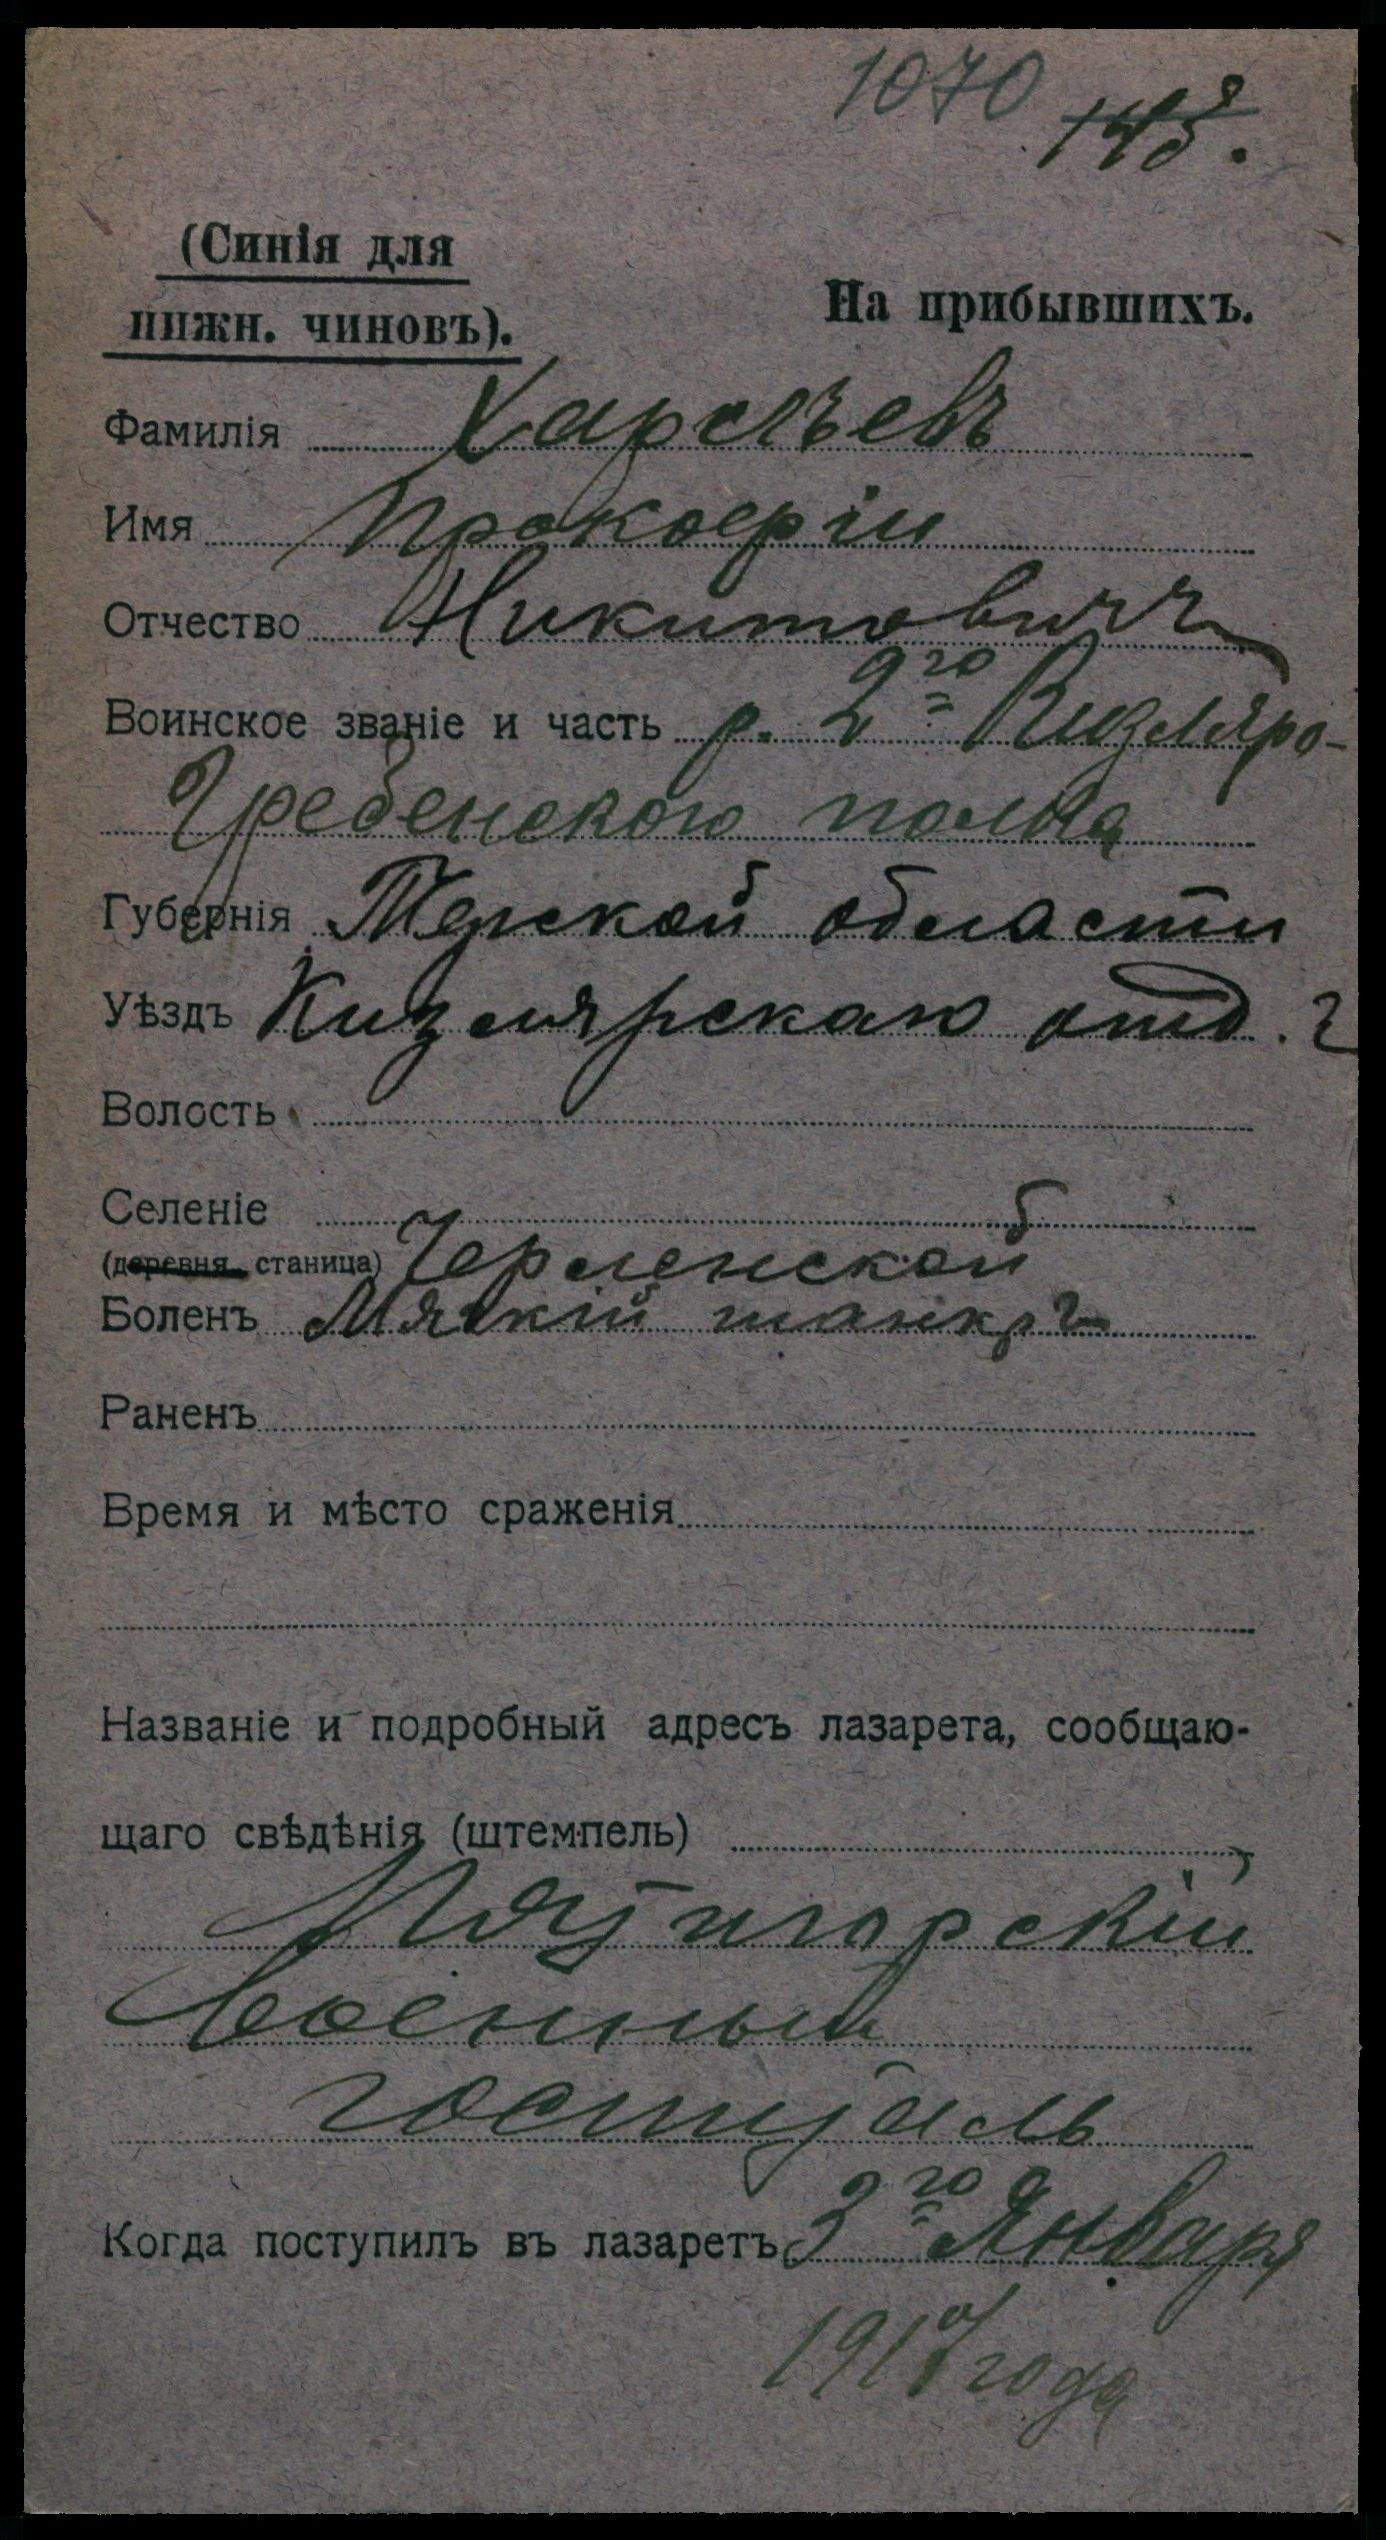 1070
(Синія для
нижн. чиновъ).
На прибывшихъ.
Фамилія
Имя Прокофій
Отчество Никитовичъ
Воинское званіе и часть р. 2го Кизляро-
Гребенского полка
Губернія Терской области
Уѣздъ Кизлярскаго отд.
Волость
Селеніе
(деревня станица) Червленской
Боленъ Мягкій шанкръ
Раненъ
Время и мѣсто сраженія
Названіе и подробный адресъ лазарета, сообщаю-
щаго свѣдѣнія (штемпель)
Пятигорскій
военный
госпиталь
Когда поступилъ въ лазаретъ 3го Января
1917 года